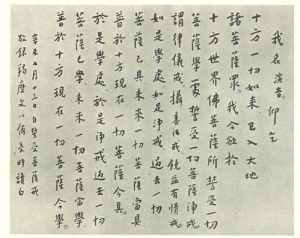 我名演音仰乞
十方一切如來已入大地
諸菩薩眾我今欲於
十方世界佛菩薩所誓受一切
菩薩學處誓受一切菩薩淨戒
謂律儀戒攝善法戒饒益有情戒
如是學處如是淨戒過去一切
菩薩已具未來一切菩薩當具
普於十方現在一切菩薩今具
於是學處於是淨戒過去一切
菩薩已學未來一切菩薩當學
普於十方現在一切菩薩今學
辛未 月十三日自誓受菩薩戒
敬錄 文以備受時請白